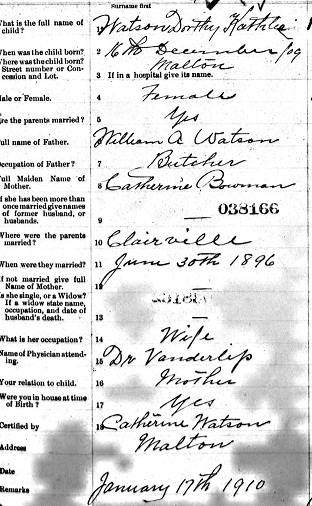 Surname first
What is the full name of child?
1 Watson Dorthy Kathleen
When was the child born?
2 16th December/09
Where was the child born? Street number or Concession and Lot.
Malton
3 If in a hospital give its name.
Male or Female.
4 Female
Are the parents married?
5 Yes
Full name of Father.
6 William A Watson
Occupation of Father?
7 Butcher
Full Maiden Name of Mother.
8 Catherine Bowman
If she has been more than once married give names of former husband, or husbands.
9 —
038166
Where were the parents married?
10 Clairville
When were they married?
11 June 30th 1896
If not married give full Name of Mother.
12
Is she single, or a Widow? If a widow state name, occupation, and date of husband's death.
13 —
What is her occupation?
14 Wife
Name of Physician attending.
15 Dr Vanderlip
Your relation to child.
16 Mother
Were you in house at time of Birth?
17 Yes
Certified by
18 Catherine Watson
Address
Malton
Date
Remarks
January 17th 1910